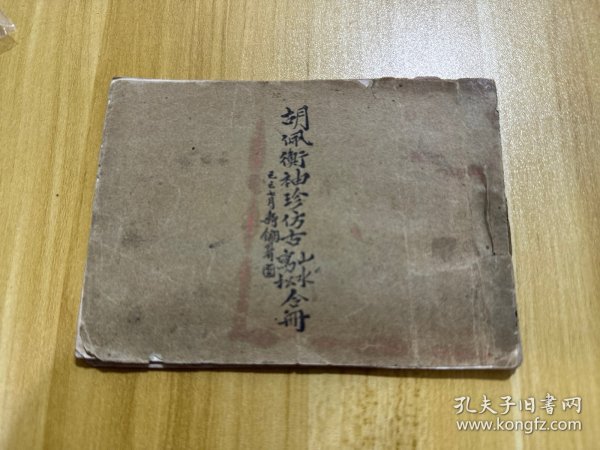 胡佩衡袖珍仿古山水写松合册
己巳七月
孔夫子旧书网
www.kongfz.com